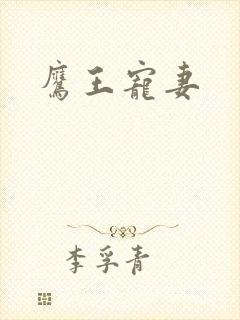 鹰王寵妻
李孚青